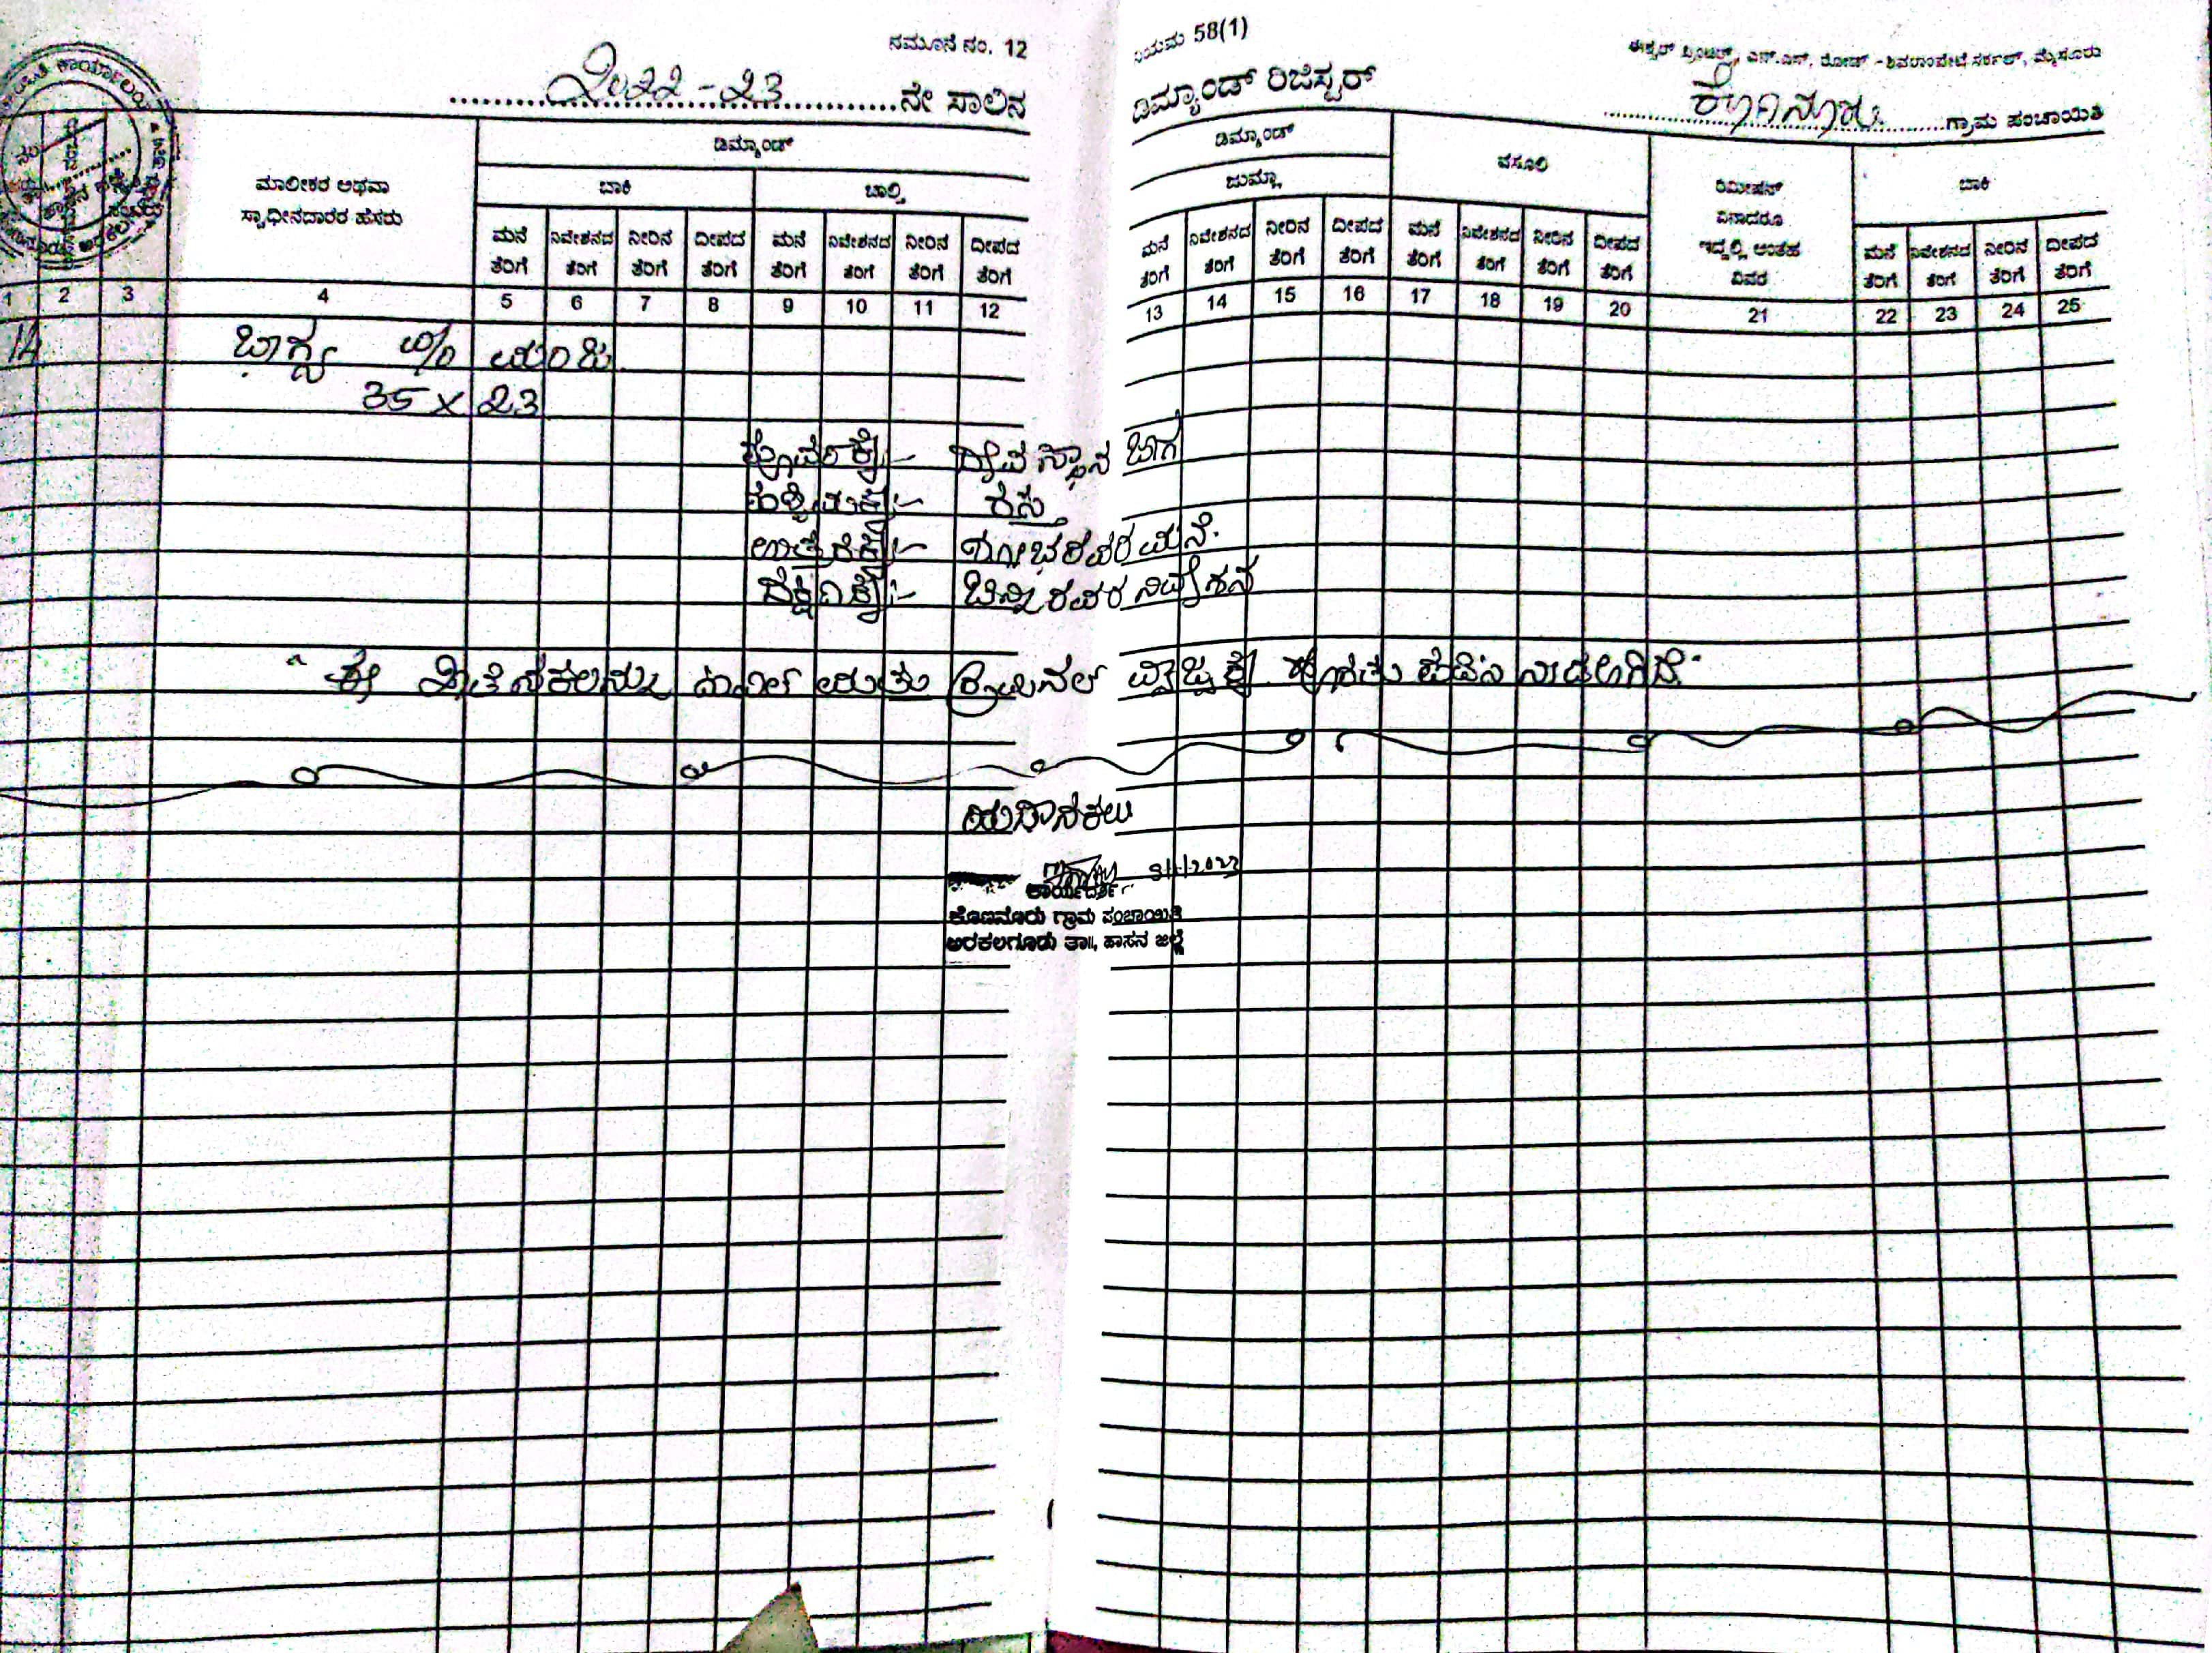 ನಮೂನೆ ನಂ. 12
ನಿಯಮ 58(1)
ಈಶ್ವರ್ ಪ್ರಿಂಟರ್ಸ್, ಎನ್.ಎಸ್. ರೋಡ್ - ಶಿವರಾಂಪೇಟೆ ಸರ್ಕಲ್, ಮೈಸೂರು
2022-23 ನೇ ಸಾಲಿನ
ಡಿಮ್ಯಾಂಡ್ ರಿಜಿಸ್ಟರ್
ಕೊಣನೂರು ಗ್ರಾಮ ಪಂಚಾಯಿತಿ
ಮಾಲೀಕರ ಅಥವಾ
ಸ್ವಾಧೀನದಾರರ ಹೆಸರು
ಡಿಮ್ಯಾಂಡ್
ಬಾಕಿ ಚಾಲ್ತಿ
ಮನೆ ತೆರಿಗೆ ನಿವೇಶನದ ತೆರಿಗೆ ನೀರಿನ ತೆರಿಗೆ ದೀಪದ ತೆರಿಗೆ ಮನೆ ತೆರಿಗೆ ನಿವೇಶನದ ತೆರಿಗೆ ನೀರಿನ ತೆರಿಗೆ ದೀಪದ ತೆರಿಗೆ
ಡಿಮ್ಯಾಂಡ್ ವಸೂಲಿ ಬಾಕಿ
ಜುಮ್ಲಾ
ರಿಮೀಷನ್
ಏನಾದರೂ
ಇದ್ದಲ್ಲಿ ಅಂತಹ
ವಿವರ
ಮನೆ ತೆರಿಗೆ ನಿವೇಶನದ ತೆರಿಗೆ ನೀರಿನ ತೆರಿಗೆ ದೀಪದ ತೆರಿಗೆ ಮನೆ ತೆರಿಗೆ ನಿವೇಶನದ ತೆರಿಗೆ ನೀರಿನ ತೆರಿಗೆ ದೀಪದ ತೆರಿಗೆ ಮನೆ ತೆರಿಗೆ ನಿವೇಶನದ ತೆರಿಗೆ ನೀರಿನ ತೆರಿಗೆ ದೀಪದ ತೆರಿಗೆ
1 2 3 4 5 6 7 8 9 10 11 12 13 14 15 16 17 18 19 20 21 22 23 24 25
14 ಭಾಗ್ಯ ಮಂಜು
35 x 23
ಪೂರ್ವಕ್ಕೆ :- ದೇವಸ್ಥಾನ ಜಾಗ
ಪಶ್ಚಿಮಕ್ಕೆ :- ರಸ್ತೆ
ಉತ್ತರಕ್ಕೆ :- ಮನೆ.
ದಕ್ಷಿಣಕ್ಕೆ :- ನಿವೇಶನ
" ಈ ಖಾತೆ ನಕಲನ್ನು ಸಿವಿಲ್ ಮತ್ತು ಕ್ರಿಮಿನಲ್ ವ್ಯಾಜ್ಯಕ್ಕೆ ಹೊರತು ಪಡಿಸಿ ನೀಡಲಾಗಿದೆ. "
ಯಥಾನಕಲು
ಕಾರ್ಯದರ್ಶಿ
ಕೊಣನೂರು ಗ್ರಾಮ ಪಂಚಾಯಿತಿ
ಅರಕಲಗೂಡು ತಾ||, ಹಾಸನ ಜಿಲ್ಲೆ